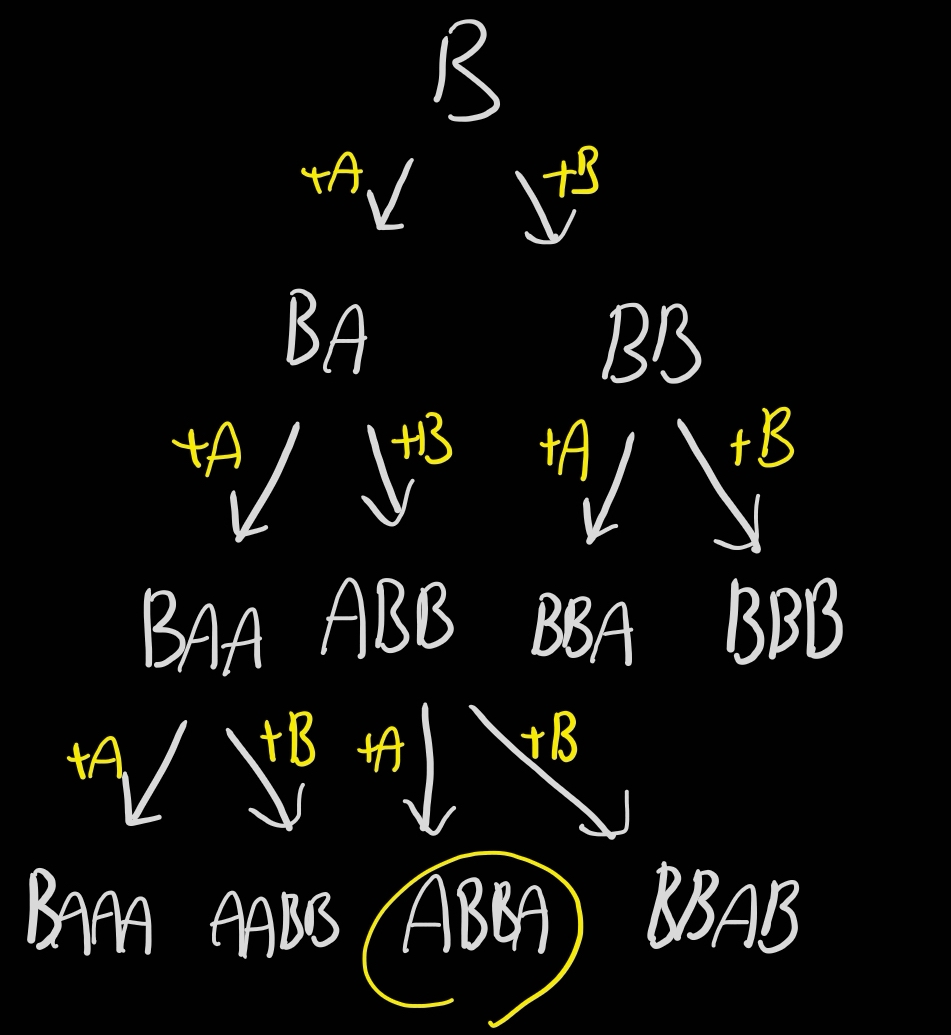 B
+A +B
BA BB
+A +B +A +B
BAA ABB BBA BBB
+A +B +A +B
BAAA AABB ABBA BBAB